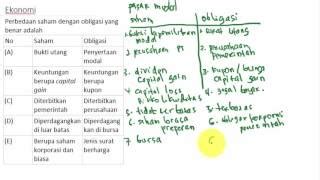 Ekonomi
Perbedaan saham dengan obligasi yang benar adalah
No Saham Obligasi
(A) Bukti utang Penyertaan modal
(B) Keuntungan berupa capital gain Keuntungan berupa bunga
(C) Diterbitkan pemerintah Diterbitkan perusahaan
(D) Diperdagangkan di luar batas Diperdagangkan di bursa
(E) Berupa saham korporasi dan biasa Jenis surat berharga
pasar modal
saham obligasi
1. bukti kepemilikan modal 1. surat utang
2. perusahaan PT 2. perusahaan pemerintah
3. dividen capital gain 3. kupon / bunga capital gain
4. capital loss risiko likuiditas 4. gagal bayar
5. tidak terbatas 5. terbatas
6. saham biasa preferen 6. obligasi korporasi pemerintah
7. bursa